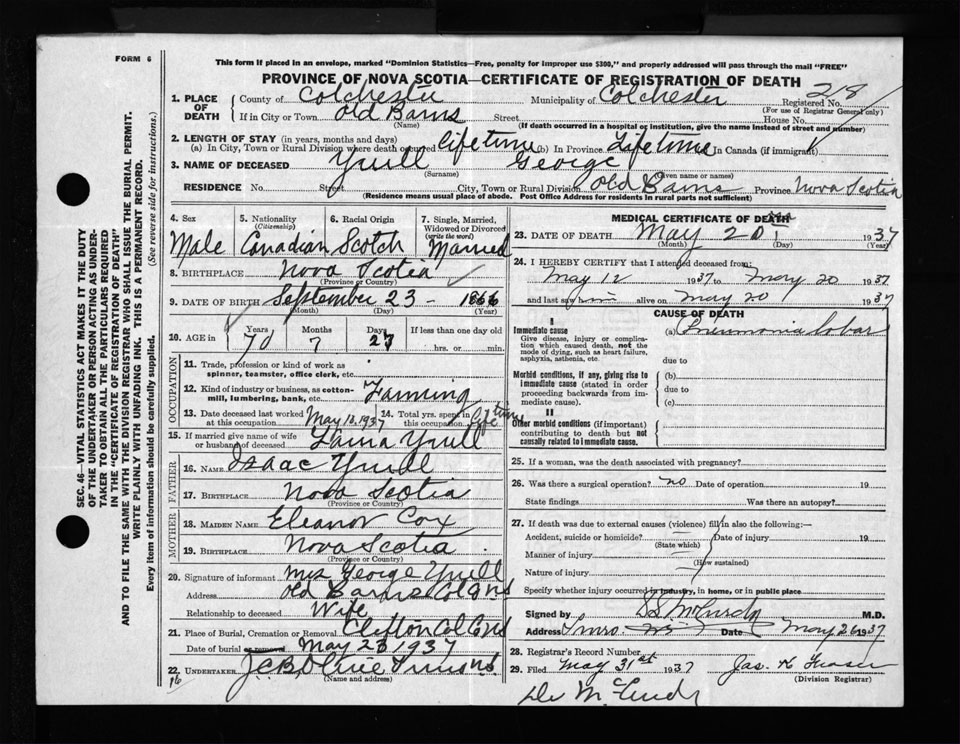 FORM 6
This form if placed in an envelope, marked "Dominion Statistics—Free, penalty for improper use $300," and properly addressed will pass through the mail "FREE"
PROVINCE OF NOVA SCOTIA—CERTIFICATE OF REGISTRATION OF DEATH
28
1. PLACE OF DEATH { County of Colchester Municipality of Colchester Registered No.
(For use of Registrar General only)
If in City or Town Old Barns Street House No.
(Name) (If death occurred in a hospital or institution, give the name instead of street and number)
2. LENGTH OF STAY (in years, months and days)
(a) In City, Town or Rural Division where death occurred lifetime (b) In Province Lifetime In Canada (if immigrant)
3. NAME OF DECEASED Yuill George
(Surname) (Given name or names)
RESIDENCE No. Street City, Town or Rural Division Old Barns Province Nova Scotia
(Residence means usual place of abode. Post Office Address for residents in rural parts not sufficient)
4. Sex Male
5. Nationality (Citizenship) Canadian
6. Racial Origin Scotch
7. Single, Married, Widowed or Divorced (write the word) Married
8. BIRTHPLACE Nova Scotia
(Province or Country)
9. DATE OF BIRTH September 23 - 1866
(Month) (Day) (Year)
10. AGE in Years 70 Months 7 Days 27 If less than one day old hrs. or min.
OCCUPATION
11. Trade, profession or kind of work as spinner, teamster, office clerk, etc.
12. Kind of industry or business, as cotton-mill, lumbering, bank, etc. Farming
13. Date deceased last worked at this occupation May 12, 1937
14. Total yrs. spent in this occupation Life time
15. If married give name of wife or husband of deceased Laura Yuill
FATHER
16. NAME Isaac Yuill
17. BIRTHPLACE Nova Scotia
(Province or Country)
MOTHER
18. MAIDEN NAME Eleanor Cox
19. BIRTHPLACE Nova Scotia
(Province or Country)
20. Signature of informant Mrs George Yuill
Address Old Barns Col Co NS
Relationship to deceased Wife
21. Place of Burial, Cremation or Removal Clifton Col Co NS
Date of burial or removal May 23 1937
22. UNDERTAKER Truro NS
(Name and address)
MEDICAL CERTIFICATE OF DEATH
23. DATE OF DEATH May 20 1937
(Month) (Day) (Year)
24. I HEREBY CERTIFY that I attended deceased from:
May 12 1937 to May 20 1937
and last saw him alive on May 20 1937
CAUSE OF DEATH
I
Immediate cause
Give disease, injury or complication which caused death, not the mode of dying, such as heart failure, asphyxia, asthenia, etc.
(a) Pneumonia lobar
due to
Morbid conditions, if any, giving rise to immediate cause (stated in order proceeding backwards from immediate cause).
(b)
due to
(c)
II
Other morbid conditions (if important) contributing to death but not causally related to immediate cause.
25. If a woman, was the death associated with pregnancy?
26. Was there a surgical operation? no Date of operation 19
State findings Was there an autopsy?
27. If death was due to external causes (violence) fill in also the following:—
Accident, suicide or homicide? Date of injury 19
(State which)
Manner of injury
(How sustained)
Nature of injury
Specify whether injury occurred in industry, in home, or in public place
Signed by McCurdy M.D.
Address Truro NS Date May 26 1937
28. Registrar's Record Number
29. Filed May 31st 1937 Jas. K Fraser
(Division Registrar)
Dr McCurdy
SEC. 46—VITAL STATISTICS ACT MAKES IT THE DUTY OF THE UNDERTAKER OR PERSON ACTING AS UNDERTAKER TO OBTAIN ALL THE PARTICULARS REQUIRED IN THE "CERTIFICATE OF REGISTRATION OF DEATH" AND TO FILE THE SAME WITH THE DIVISION REGISTRAR WHO SHALL ISSUE THE BURIAL PERMIT.
WRITE PLAINLY WITH UNFADING INK. THIS IS A PERMANENT RECORD.
Every item of information should be carefully supplied. (See reverse side for instructions.)